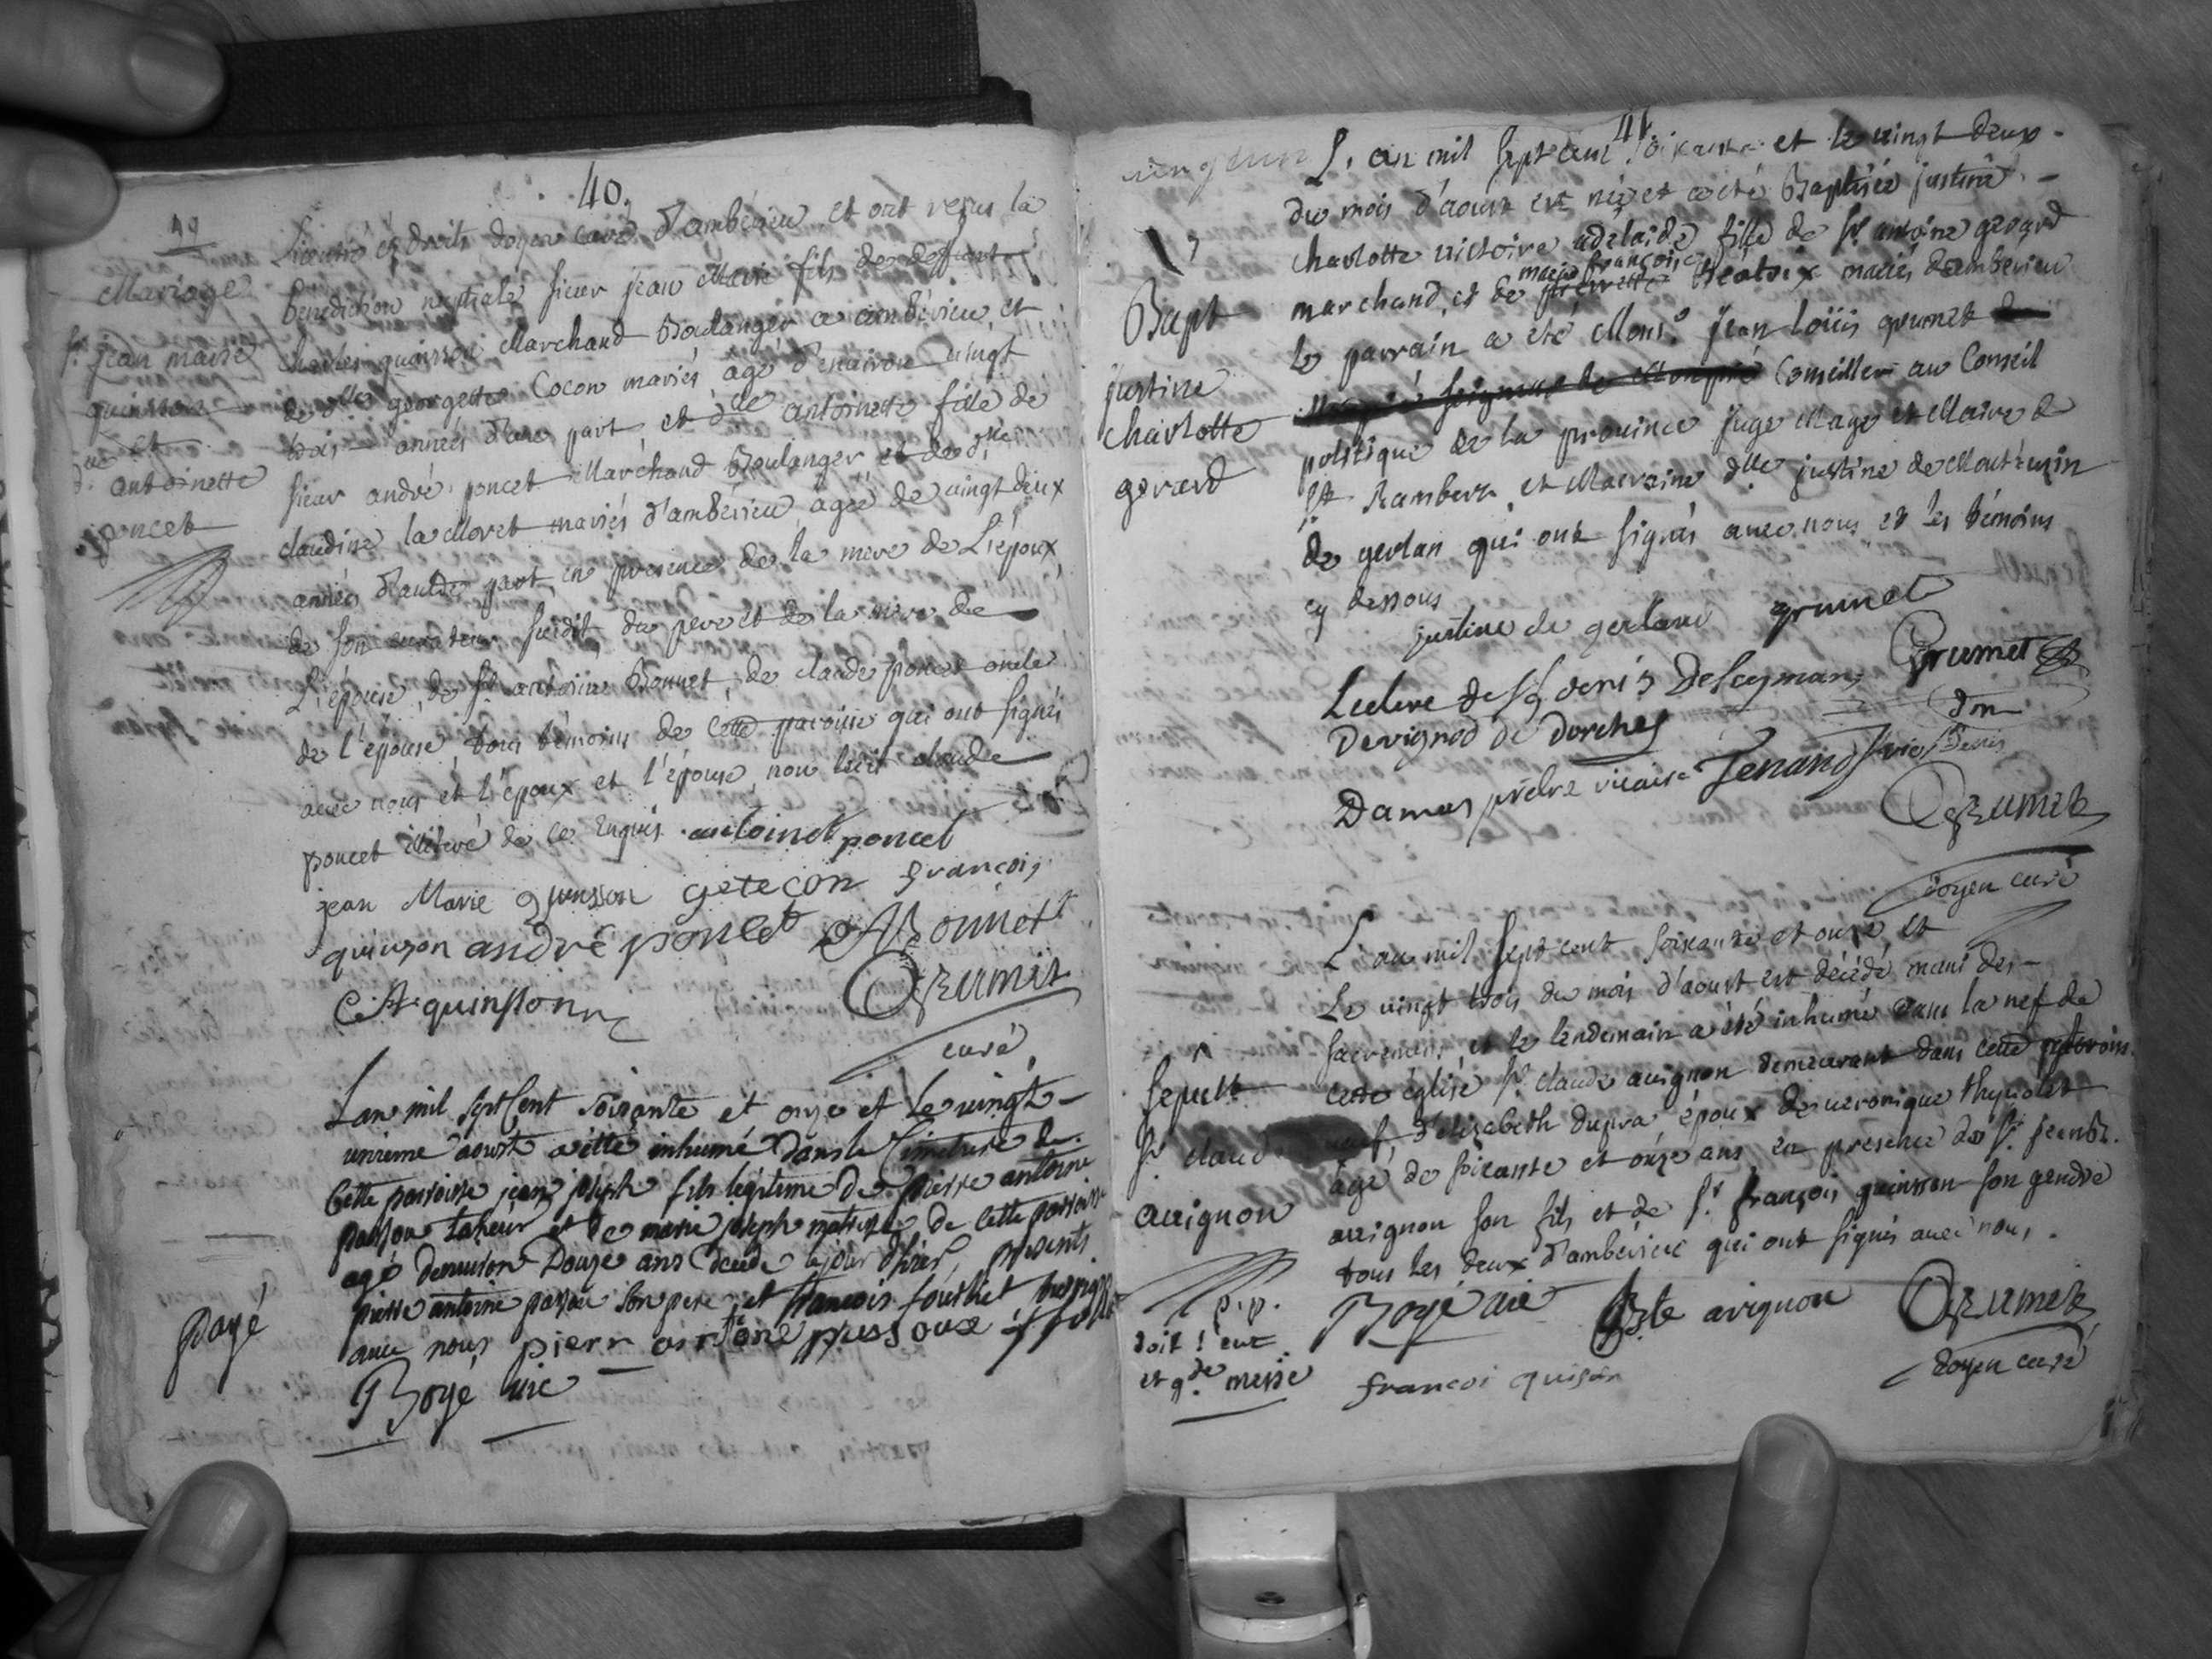 40.
49
Mariage
sr. jean marie
quinson
et
dlle antoinette
poncet
Licentié es droits doyen curé d'ambérieu et ont reçus la
benediction nuptiale sieur jean Marie fils de deffunt
charles quinsson Marchand Boulanger a ambérieu et
de dlle georgette Cocon mariés agé d'environ vingt
trois années d'une part, et dlle antoinette fille de
sieur andré poncet Marchand Boulanger et de dlle
claudine la Moret mariés d'ambérieu agée de vingt deux
années d'autre part en presence de la mere de L'époux,
de son curateur susdit, du pere et de la mere de
L'épouse, de sr. antoine Bonnet, de claude poncet oncle
de l'épouse, tous témoins de cette paroisse qui ont signés
avec nous et l'époux et l'épouse, non ledit claude
poncet illiteré de ce Enquis. antoinet poncet
jean Marie quinsson gete con françois
quinson andré poncet Bonnet
C. A. quinsson Grumet
curé
payé
Lan mil sept Cent soixante et onze et le vingt
unieme aoust a étté inhumé dans le Cimetiere de
Cette parroisse jean joseph fils légitime de pierre antoine
de marie joseph de Cette parroisse
agé denviron Douze ans decedé le jour d'hier, présents
pierre antoine son pere et francois
avec nous pierr antoine
Boyé vic
41
L'an mil sept cent soixante et le vingt deux
du mois d'aoust est née et a été Baptisée justine
charlotte victoire adelaide fille de sr. antoine gerard
marie françoise
marchand, et de pierrette Beatrix mariés d'amberieu
le parrain a été Monsr. jean Loüis grumet de
seigneur de Conseiller au Conseil
politique de la province juge Mage et Maire de
St. Rambert, et Marraine dlle justine de Montezuin
de gerlan qui ont signés avec nous et les témoins
cy dessous
Bapt
justine
charlotte
gerard
justine de gerland grumet
Leclerc de St denis Grumet
Devignod de Dorches
Damas prêtre vicaire
Grumet
doyen curé
L'an mil sept cent soixante et onze, et
Le vingt trois du mois d'aoust est décédé muni des
sacremens, et le lendemain a été inhumé dans la nef de
cette église sr. claude avignon demeurant dans cette paroisse
veuf d'elizabeth dupra époux de veronique
agé de soixante et onze ans en presence de sr. jean bt.
avignon son fils et de sr. françois quinsson son gendre
tous les deux d'ambérieu qui ont signés avec nous.
sepult
sr. claude
avignon
p.p.
doit
et gde. messe
Boyé vic Bte avignon Grumet
francoi quison doyen curé